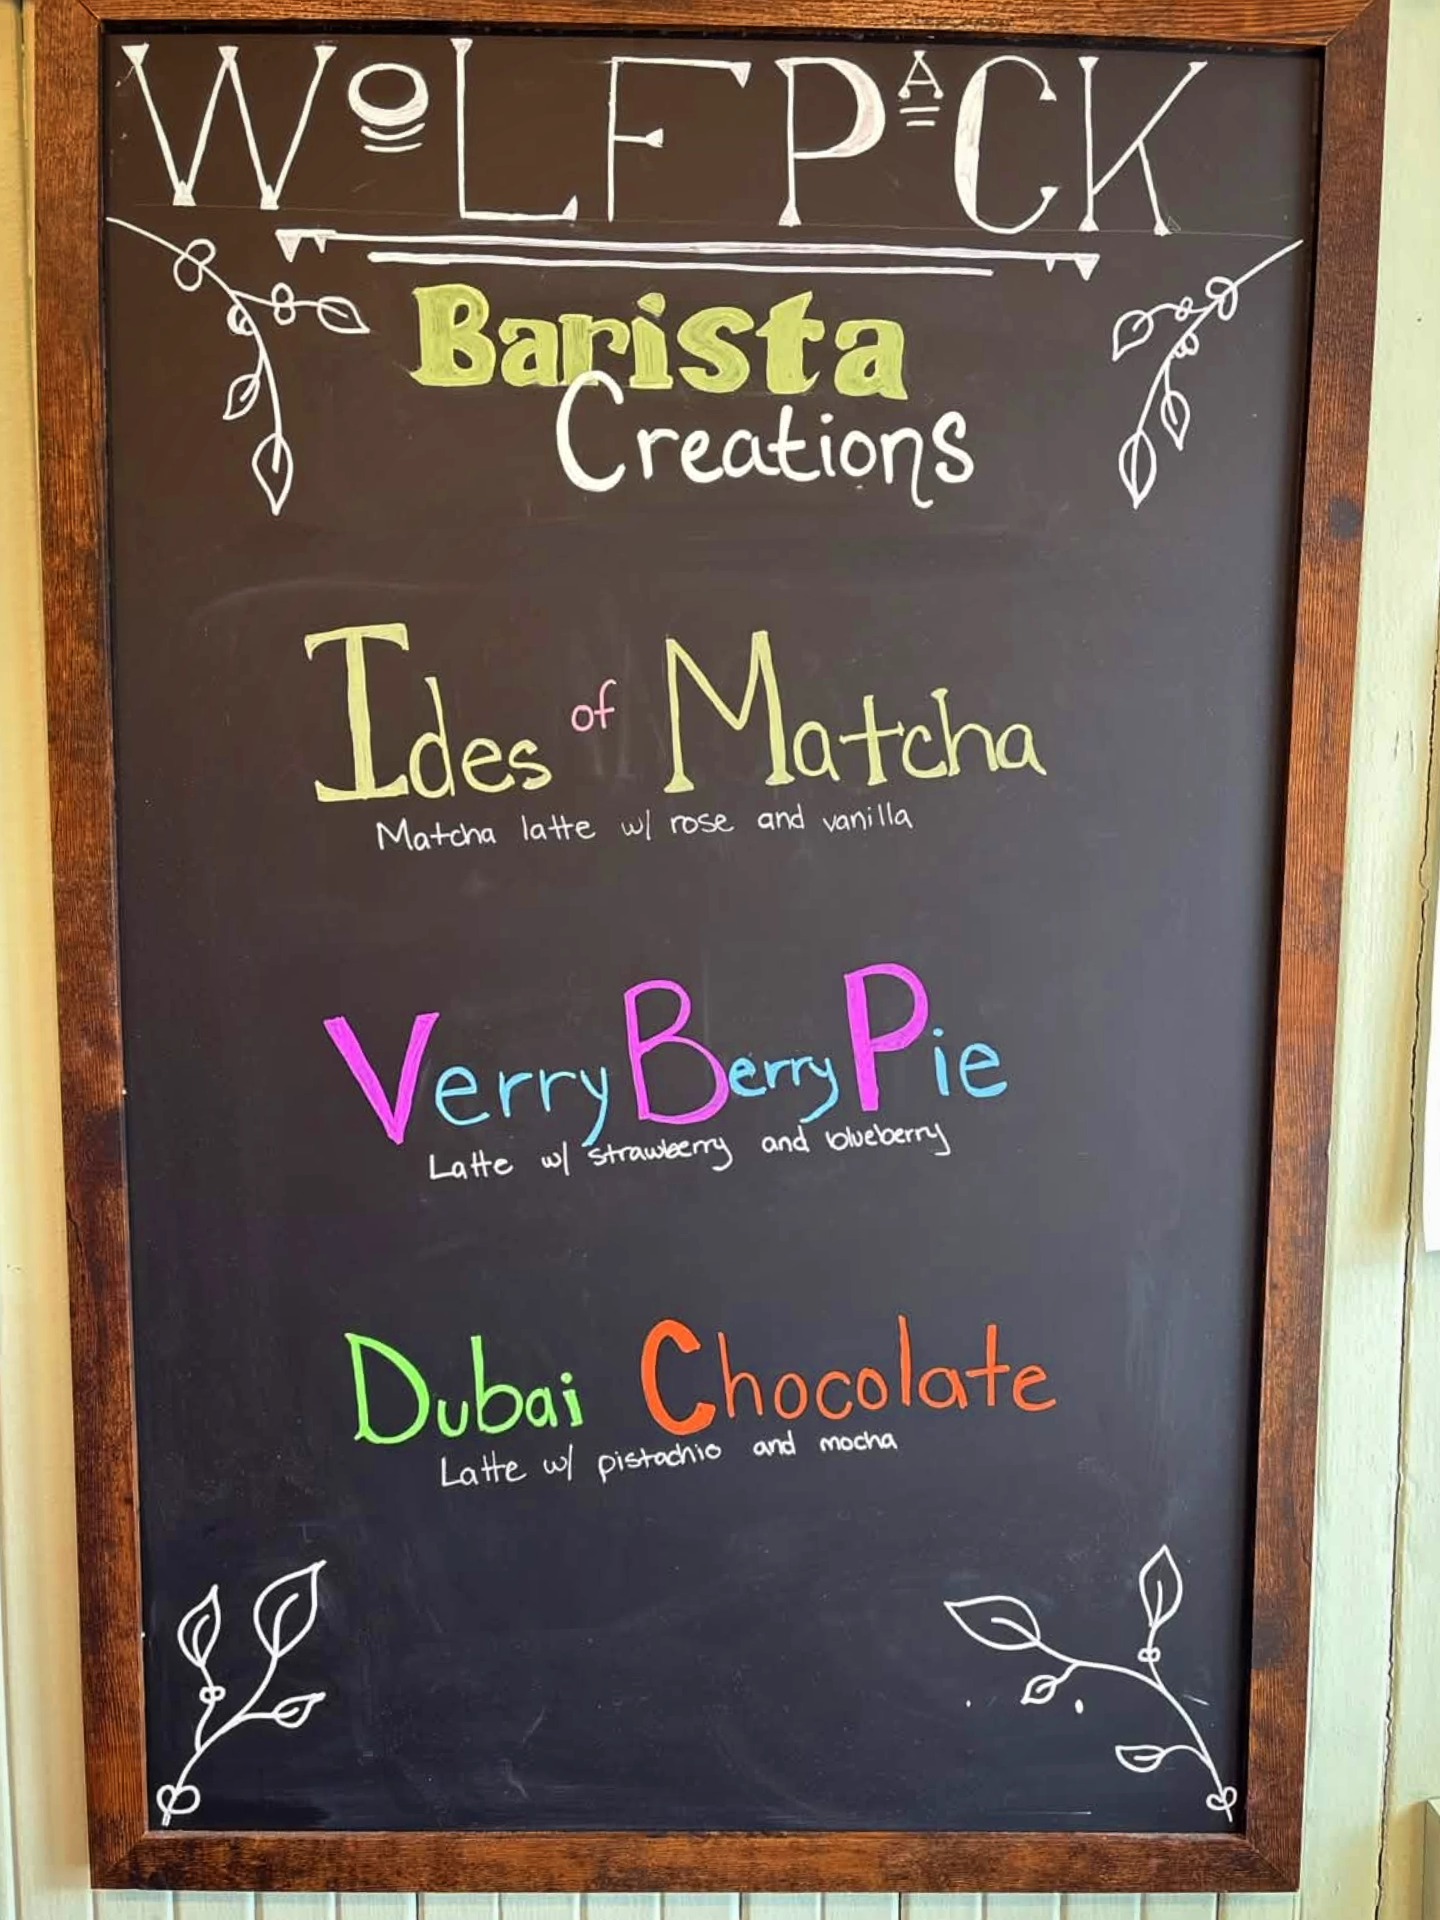 WOLFPACK
Barista
Creations
Ides of Matcha
Matcha latte w/ rose and vanilla
Verry Berry Pie
Latte w/ strawberry and blueberry
Dubai Chocolate
Latte w/ pistachio and mocha